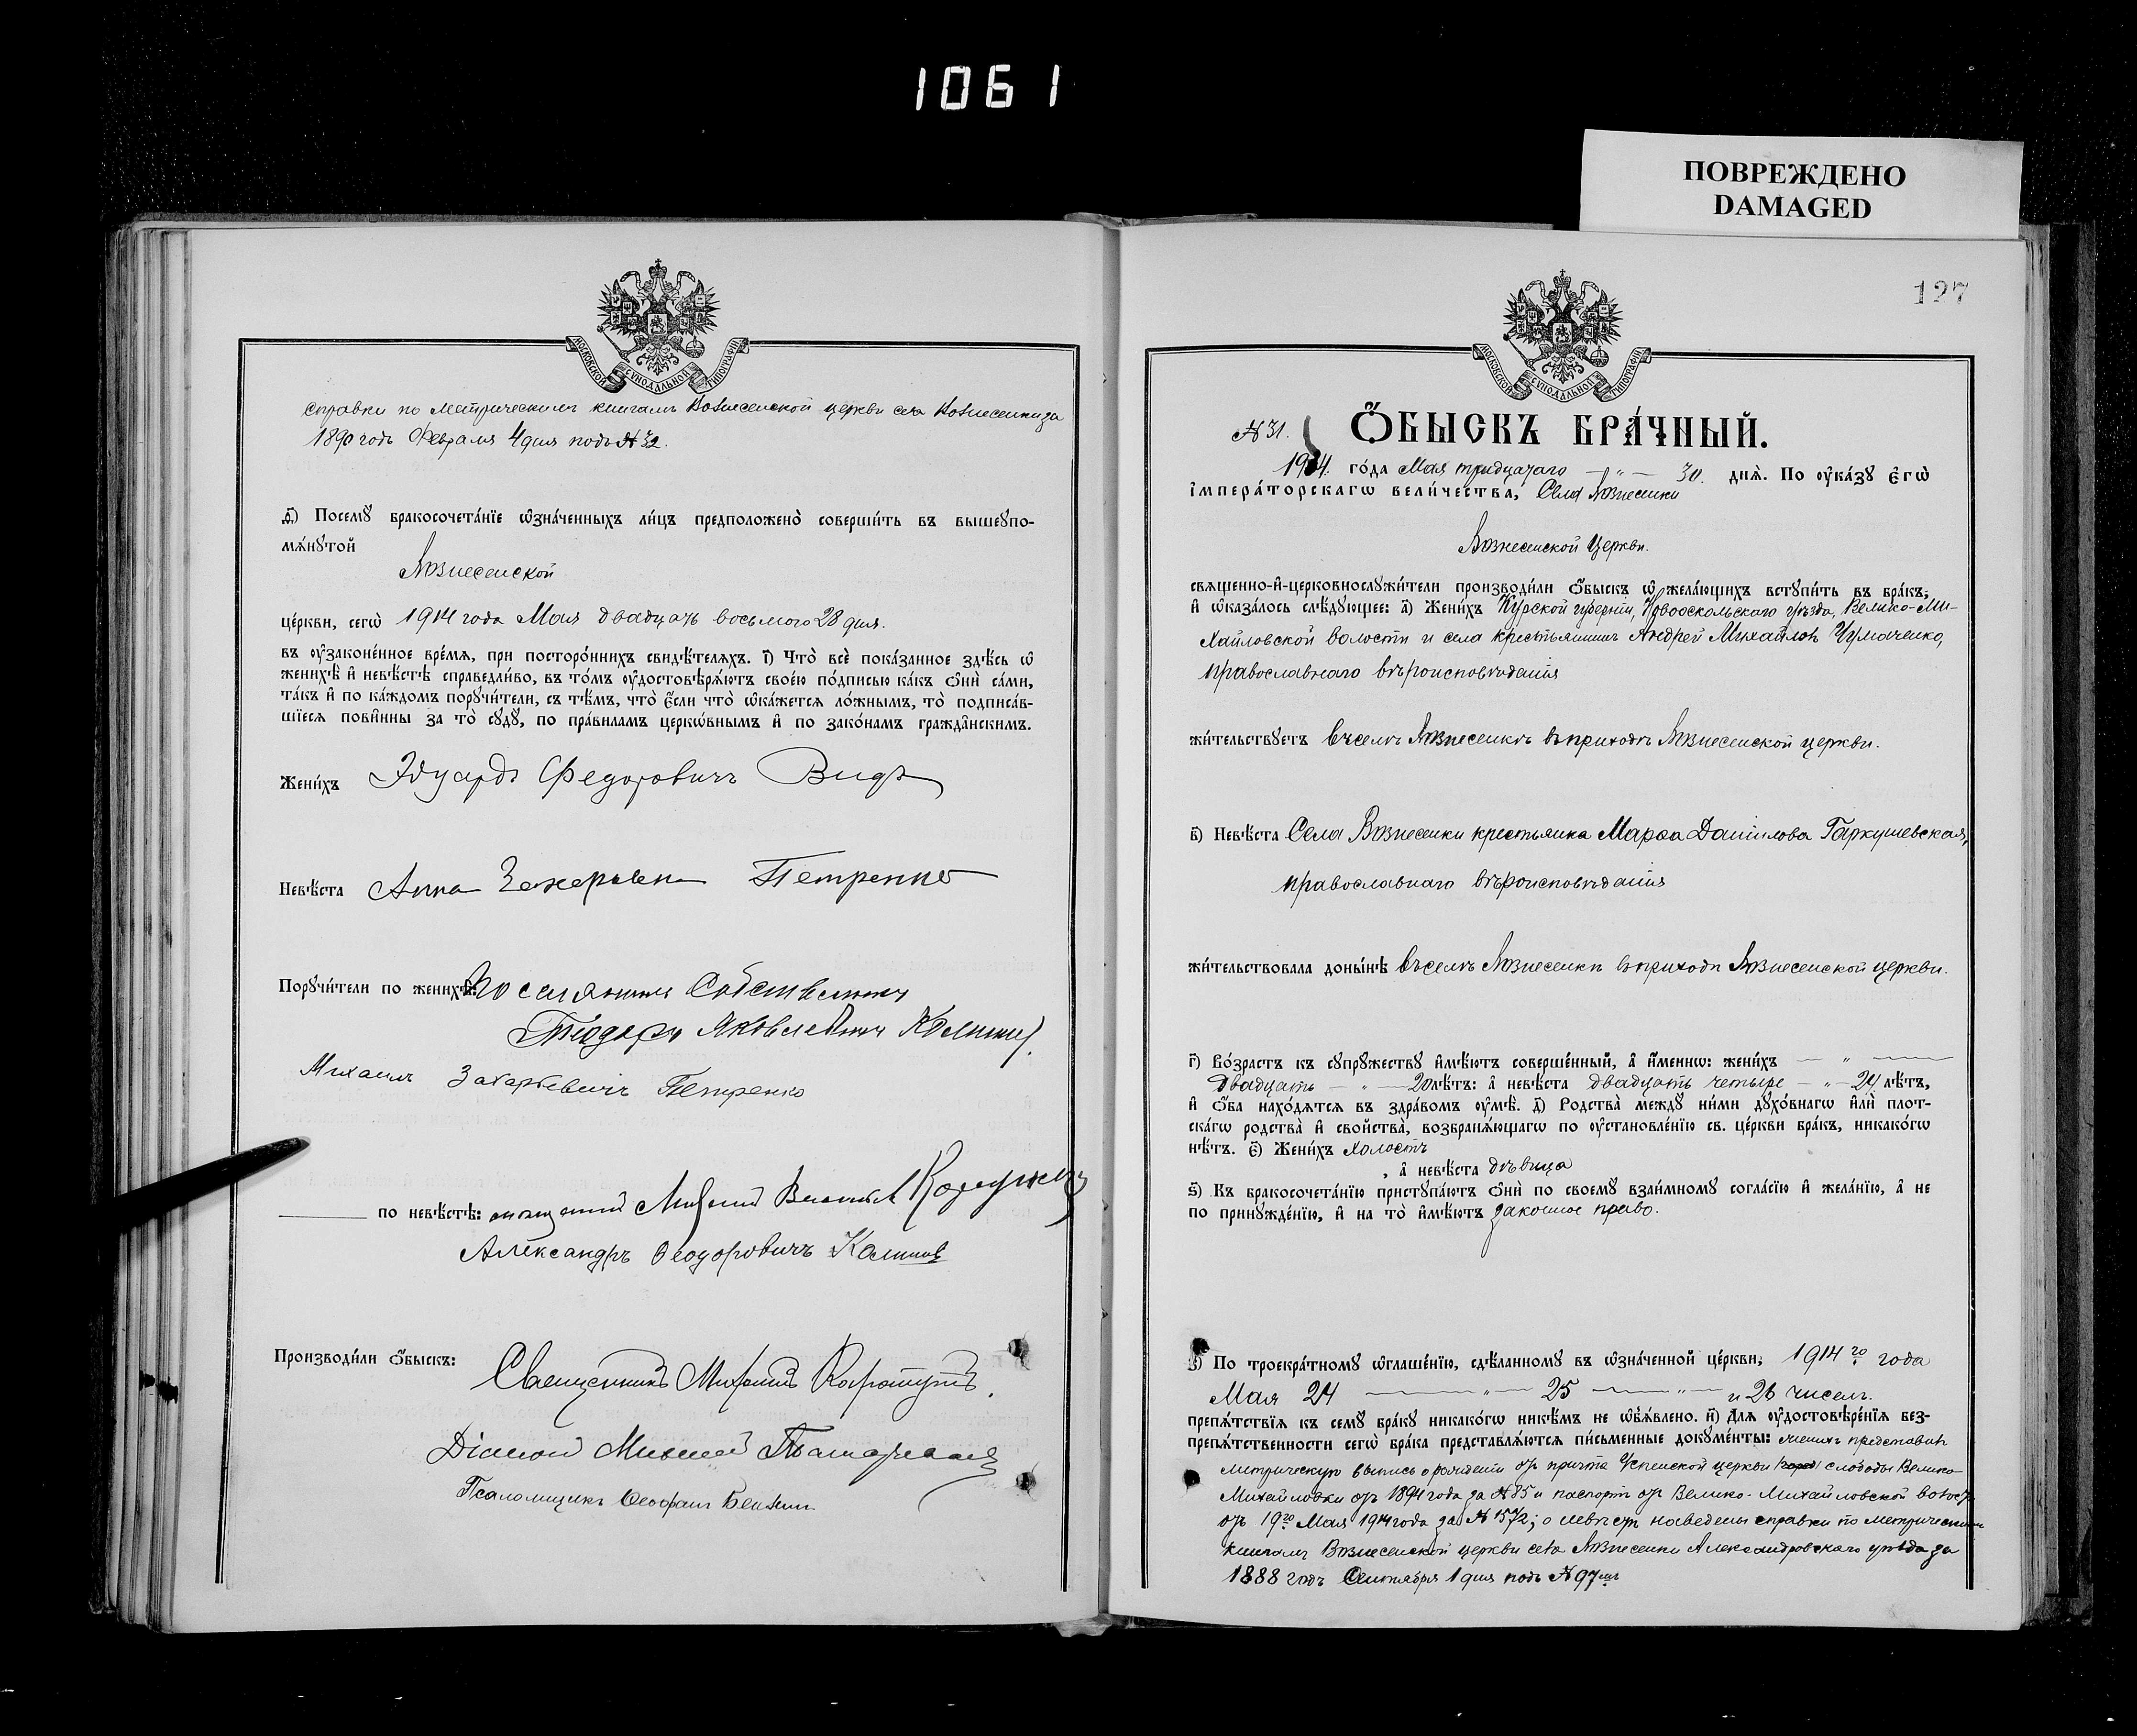 1061
ПОВРЕЖДЕНО
DAMAGED
МОСКОВСКОЙ СѴНОДАЛЬНОЙ ТИПОГРАФІИ
справки по метрическимъ книгамъ Вознесенской церкви села Вознесенки за
1890 годъ Февраля 4 дня подъ № 32.
д҃) Посемꙋ бракосочета́нїе ѡ҆зна́ченныхъ ли́цъ предположено̀ соверши́ть въ вышеꙋпо-
мѧ́нꙋтой
Вознесенской
це́ркви, сегѡ̀ 1914 года Мая двадцать восьмого 28 дня.
въ ᲂу҆законе́нное вре́мѧ, при посторо́ннихъ свидѣ́телѧхъ. і҃) Что̀ всѐ пока́занное здѣ́сь ѡ҆
женихѣ̀ и҆ невѣ́стѣ справедли́во, въ то́мъ ᲂу҆достовѣрѧ́ютъ свое́ю по́дписью ка́къ ѻ҆нѝ са́ми,
та́къ и҆ по ка́ждомъ порꙋчи́тели, съ тѣ́мъ, что̀ є҆́сли что̀ ѡ҆ка́жетсѧ ло́жнымъ, то̀ подписа́в-
шїесѧ пови́нны за то̀ сꙋдꙋ̀, по пра́виламъ церкѡ́внымъ и҆ по зако́намъ гражда́нскимъ.
Жени́хъ Эдуардъ Федоровичъ Видъ
Невѣ́ста Анна Захарьевна Петренко
Порꙋчи́тели по женихѣ̀: Поселянинъ Собственникъ
Теодоръ Яковлевичъ
Михаилъ Захарьевичъ Петренко
по невѣ́стѣ:
Александръ Ѳеодоровичъ Калинов
Производи́ли ѻ҆́быскъ: Священникъ Михаилъ
Діаконъ Михаилъ
Псаломщикъ Ѳеофанъ
127
МОСКОВСКОЙ СѴНОДАЛЬНОЙ ТИПОГРАФІИ
№ 31. Ѻ҆́БЫСКЪ БРА́ЧНЫЙ.
1914. го́да Мая тридцатаго — „ — 30. днѧ̀. По ᲂу҆ка́зꙋ є҆гѡ̀
і҆мпера́торскагѡ вели́чества, Села Вознесенки
Вознесенской Церкви.
свѧщенно-и҆-церковнослꙋжи́тели производи́ли ѻ҆́быскъ ѡ҆ жела́ющихъ встꙋпи́ть въ бра́къ,
и҆ ѡ҆каза́лось слѣ́дꙋющее: а҃) Жени́хъ Курской губерніи, Новооскольскаго уѣзда, Велико-Ми-
хайловской волости и села крестьянинъ Андрей Михайловъ Чумаченко,
православнаго вѣроисповѣданія
жи́тельствꙋетъ въ селѣ Вознесенкѣ въ приходѣ Вознесенской церкви.
в҃) Невѣ́ста Села Вознесенки крестьянка Марѳа Даніилова Гаркушевская,
православнаго вѣроисповѣданія
жи́тельствовала доны́нѣ въ селѣ Вознесенкѣ въ приходѣ Вознесенской церкви.
г҃) Во́зрастъ къ сꙋпрꙋ́жествꙋ и҆мѣ́ютъ соверше́нный, а҆ и҆́меннѡ: жени́хъ — „ —
двадцать — „ — 20 лѣ́тъ: а҆ невѣ́ста двадцать четыре — „ — 24 лѣ́тъ,
и҆ ѻ҆́ба нахо́дѧтсѧ въ здра́вомъ ᲂу҆мѣ̀. д҃) Родства̀ междꙋ̀ ни́ми дꙋхо́внагѡ и҆лѝ плот-
ска́гѡ родства̀ и҆ сво́йства̀, возбранѧ́ющагѡ по ᲂу҆становле́нїю св. це́ркви бра́къ, никако́гѡ
нѣ́тъ. є҃) Жени́хъ холостъ
, а҆ невѣ́ста дѣвица
ѕ҃) Къ бракосочета́нїю пристꙋпа́ютъ ѻ҆нѝ по своемꙋ̀ взаи́мномꙋ согла́сїю и҆ жела́нїю, а҆ не
по принꙋжде́нїю, и҆ на то̀ и҆мѣ́ютъ законное право.
з҃) По троекра́тномꙋ ѡ҆глаше́нїю, сдѣ́ланномꙋ въ ѡ҆зна́ченной це́ркви, 1914 го года
Мая 24 — „ — 25 — „ — и 26 чиселъ.
препѧ́тствїѧ къ семꙋ̀ бра́кꙋ никако́гѡ никѣ́мъ не ѡ҆б̾ѧ́влено. и҃) Длѧ̀ ᲂу҆достовѣре́нїѧ без-
препѧ́тственности сегѡ̀ бра́ка представлѧ́ютсѧ пи́сьменные докꙋме́нты: женихъ представилъ
метрическую выпись о рожденіи отъ причта Успенской церкви слободы Велико-
Михайловки отъ 1894 года за № 85 и паспортъ отъ Велико-Михайловской волости
отъ 19 го Мая 1914 года за № 1572; о невѣстѣ наведены справки по метрическимъ
книгамъ Вознесенской церкви села Вознесенки Александровскаго уѣзда за
1888 годъ Сентября 1 дня подъ № 97 мъ